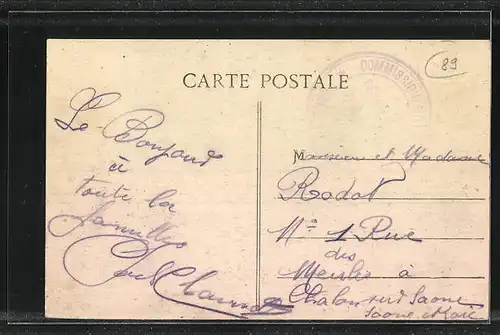 CARTE POSTALE
COMMISSION
89
Le Bonjour
à
toute la
famille
Monsieur et Madame
Rodot
Nº 1 Rue
des
à
Chalon sur Saone
Saone et Loire